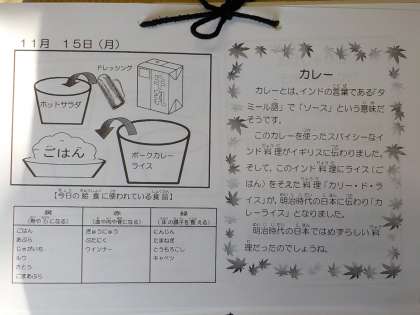 11月 15日(月)
ドレッシング
ホットサラダ
ごはん
ポークカレー
ライス
【今日の給食に使われている食品】
黄 赤 緑
(熱や力になる) (血や肉や骨になる) (体の調子を整える)
ごはん ぎゅうにゅう にんじん
あぶら ぶたにく たまねぎ
じゃがいも ウインナー とうもろこし
ルウ キャベツ
さとう
ごまあぶら
カレー
カレーとは、インドの言葉である「タ
ミール語」で「ソース」という意味だ
そうです。
このカレーを使ったスパイシーなイ
ンド料理がイギリスに伝わりました。
そして、このインド料理にライス(ご
はん)をそえた料理「カリー・ド・ライ
ス」が、明治時代の日本に伝わり「カ
レーライス」となりました。
明治時代の日本ではめずらしい料
理だったのでしょうね。